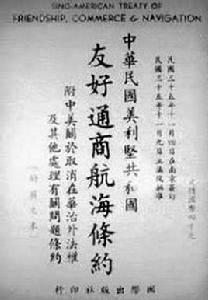 SINO-AMERICAN TREATY OF
FRIENDSHIP, COMMERCE & NAVIGATION
民國三十五年十一月四日在南京簽訂
民國三十五年十一月九日立法院批准
中華民國美利堅共和國
友好通商航海條約
附中美關於取消在華治外法權
及其他處理有關問題條約
國際出版社印行